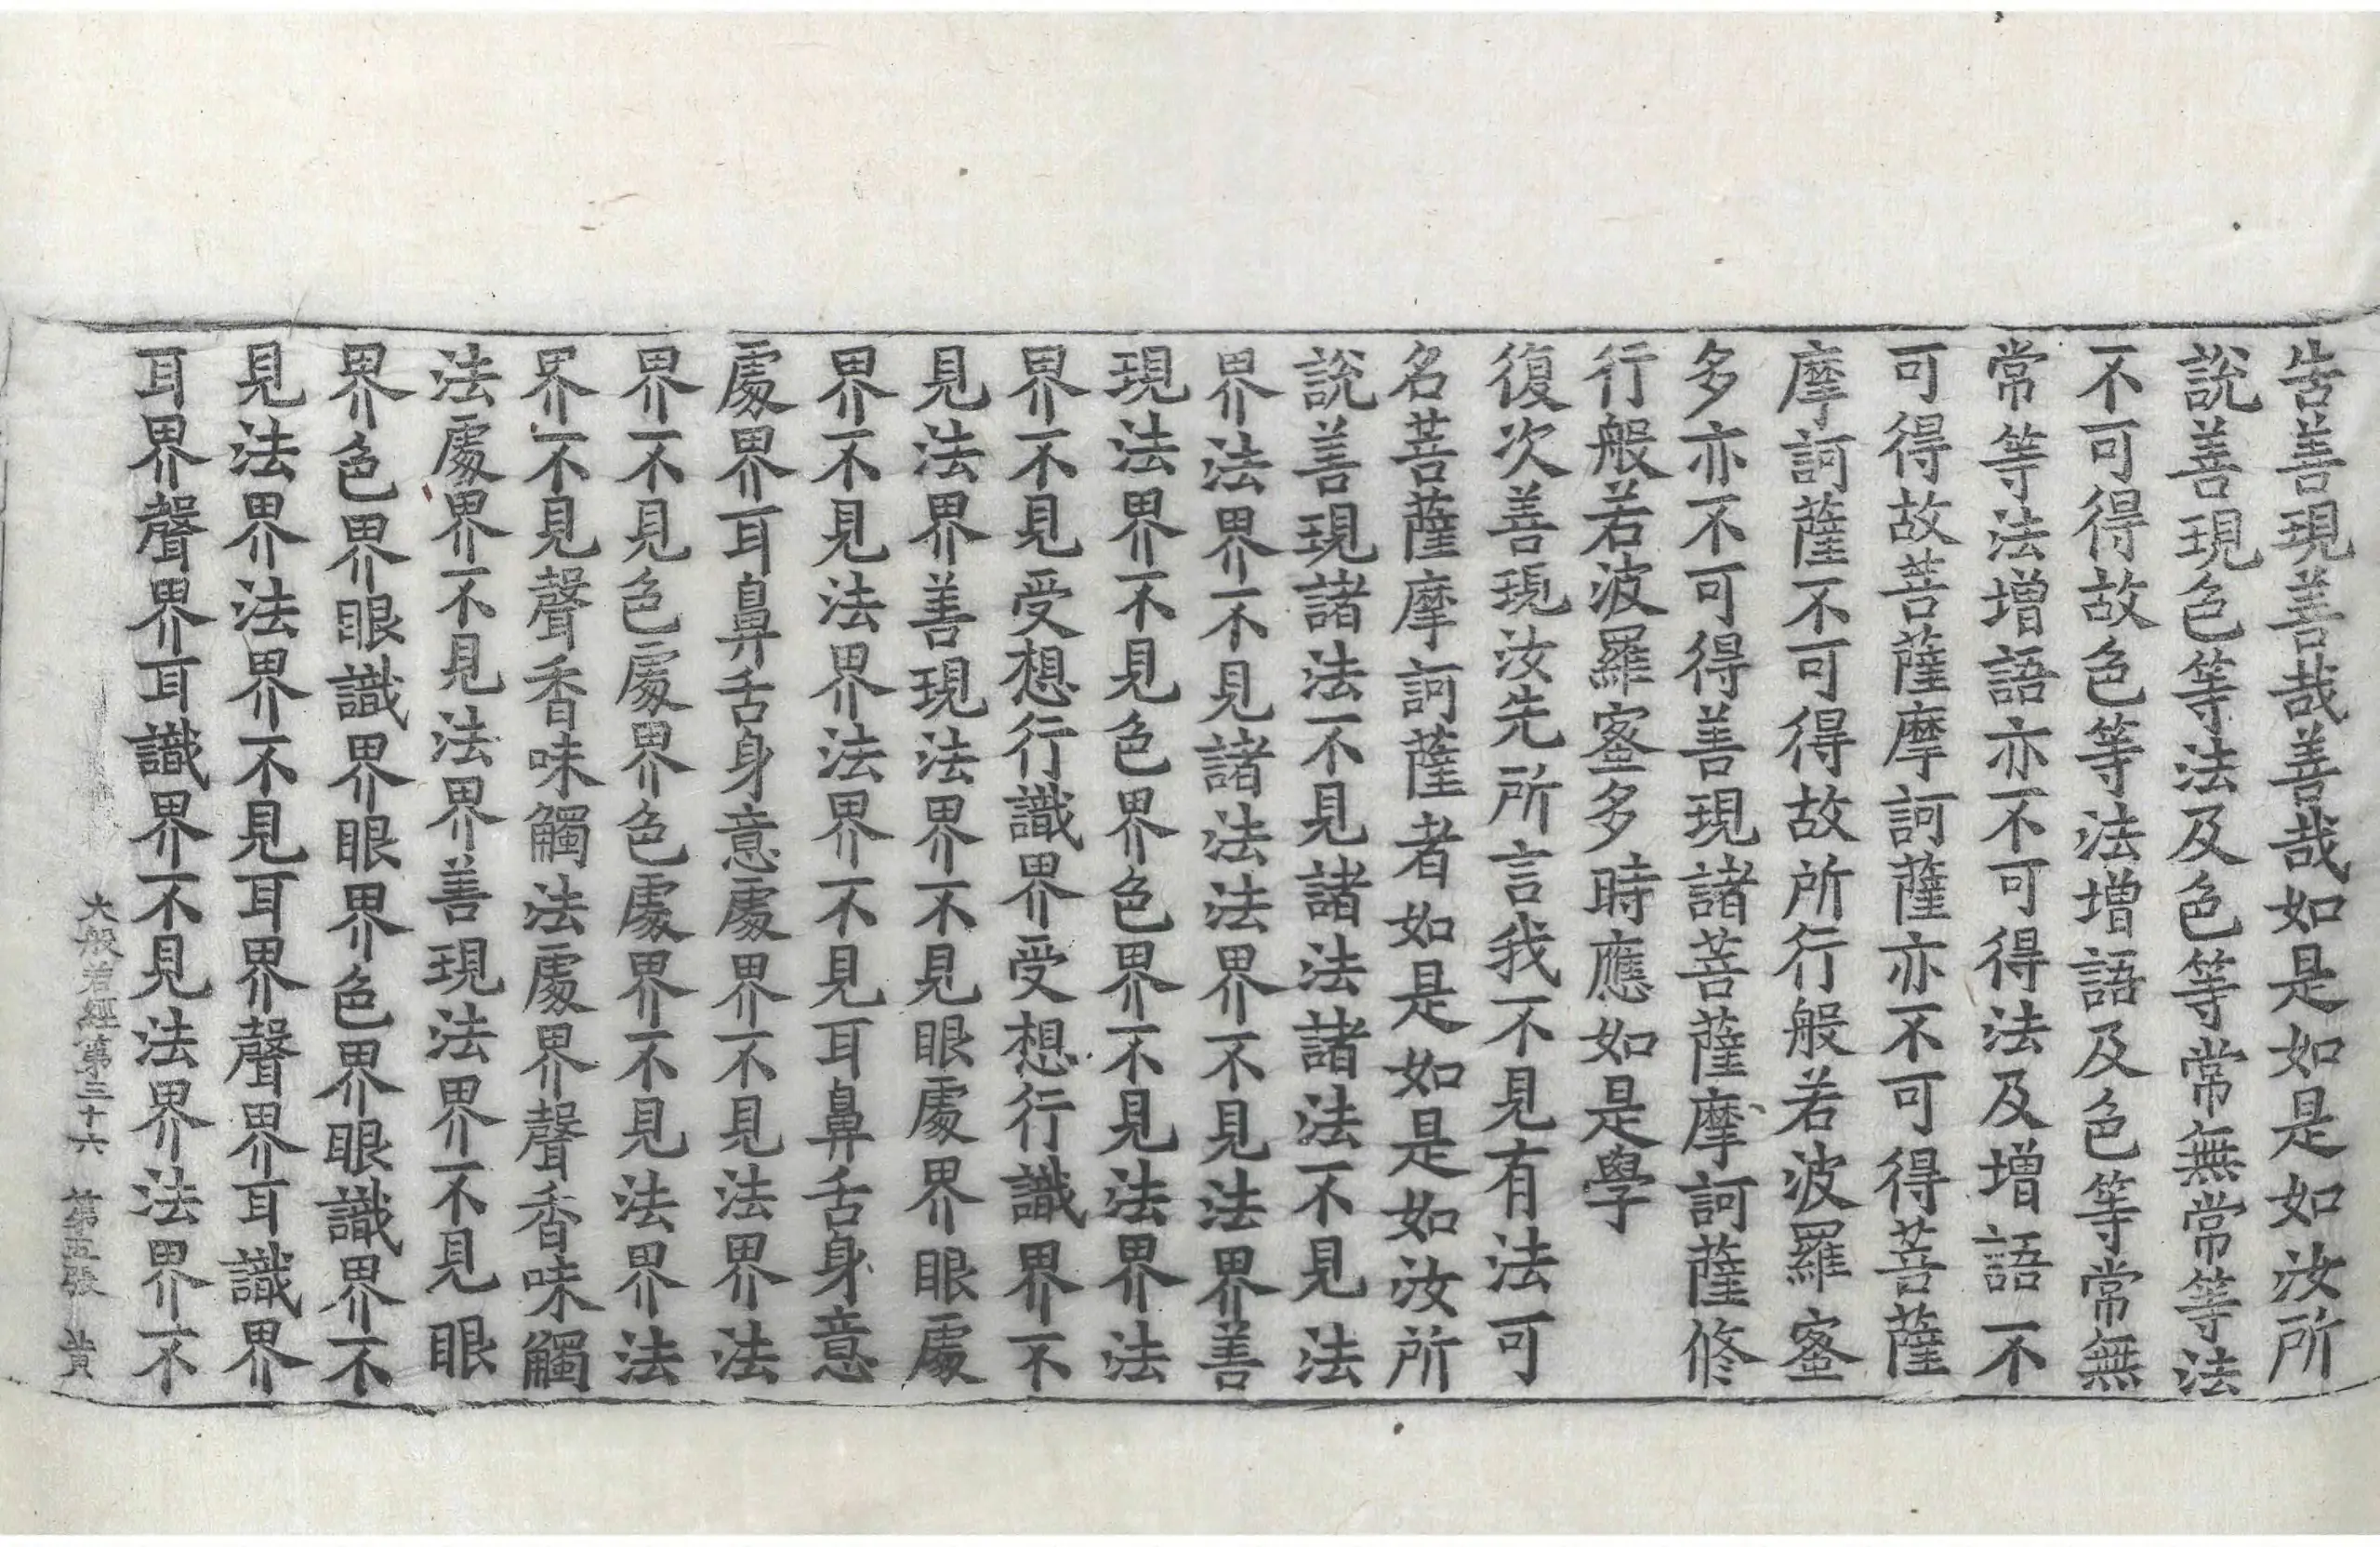 告善現善哉善哉如是如是如汝所
說善現色等法及色等常無常等法
不可得故色等法增語及色等常無
常等法增語亦不可得法及增語不
可得故菩薩摩訶薩亦不可得菩薩
摩訶薩不可得故所行般若波羅蜜
多亦不可得善現諸菩薩摩訶薩修
行般若波羅蜜多時應如是學
復次善現汝先所言我不見有法可
名菩薩摩訶薩者如是如是如汝所
說善現諸法不見諸法諸法不見法
界法界不見諸法法界不見法界善
現法界不見色界色界不見法界法
界不見受想行識界受想行識界不
見法界善現法界不見眼處界眼處
界不見法界法界不見耳鼻舌身意
處界耳鼻舌身意處界不見法界法
界不見色處界色處界不見法界法
界不見聲香味觸法處界聲香味觸
法處界不見法界善現法界不見眼
界色界眼識界眼界色界眼識界不
見法界法界不見耳界聲界耳識界
耳界聲界耳識界不見法界法界不
大般若經第三十六 第五張 黃